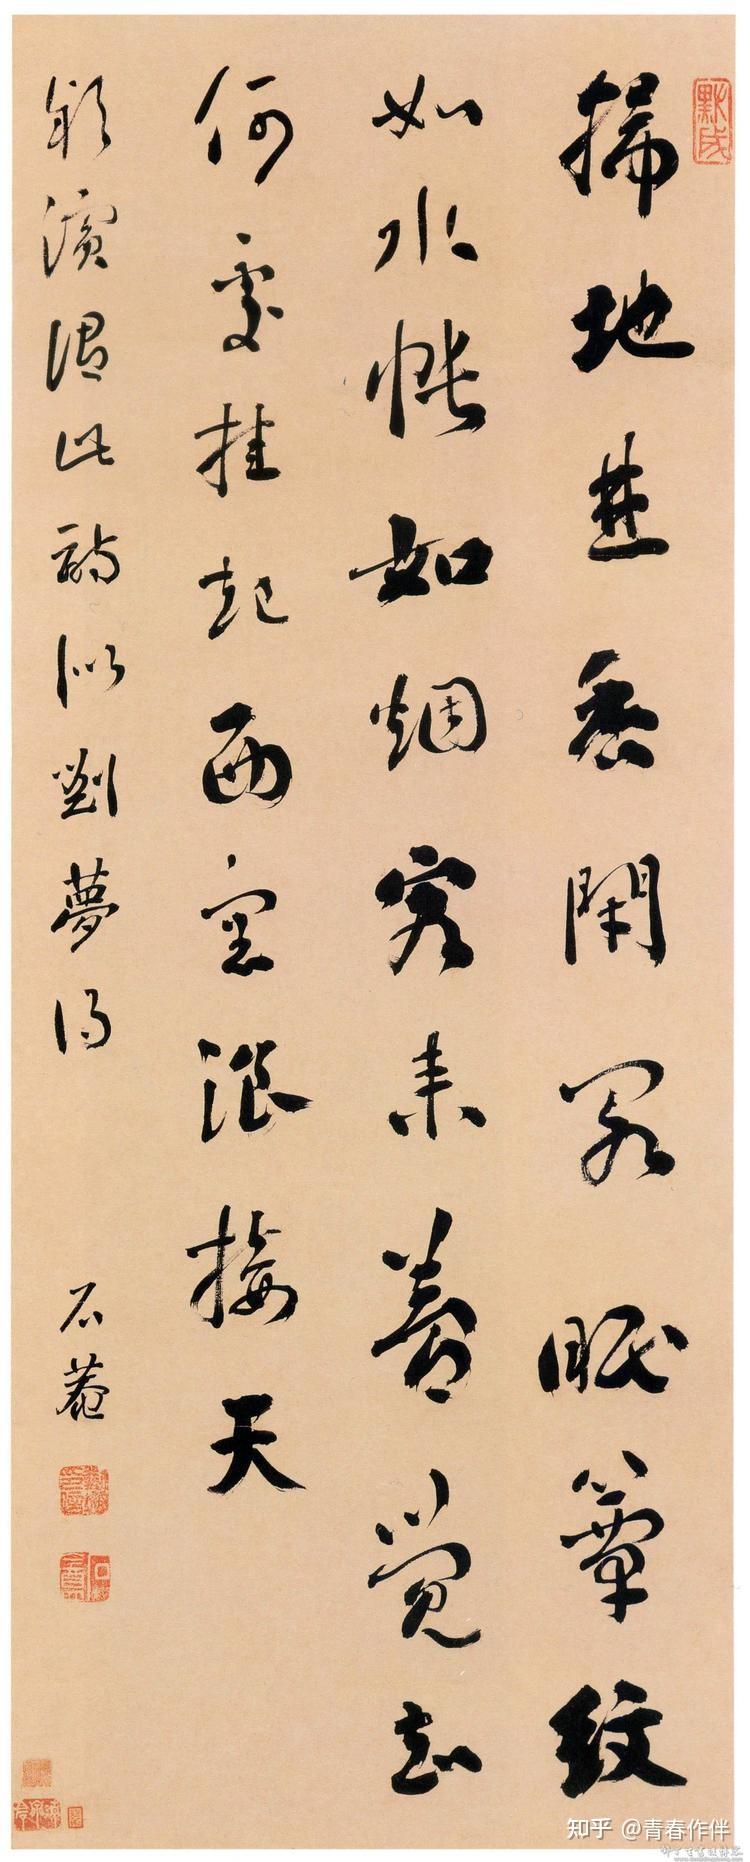 默成
掃地焚香閉閣眠簟紋
如水帳如烟客来夢覺知
何處挂起西窓浪接天
潁濱謂此詩似劉夢得
石菴
知乎 @青春作伴